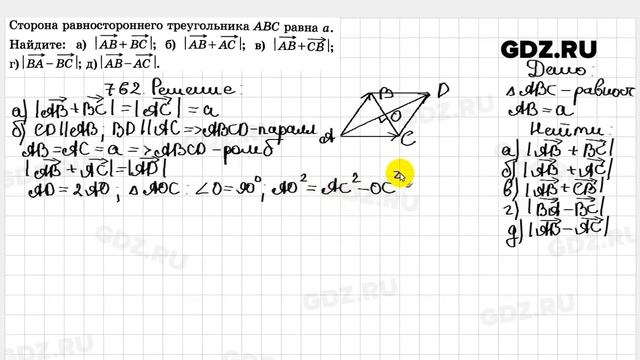 Сторона равностороннего треугольника ABC равна a.
Найдите: а) |AB+BC|; б) |AB+AC|; в) |AB+CB|;
г) |BA−BC|; д) |AB−AC|.
GDZ.RU
762. Решение:
а) |AB+BC| = |AC| = a
б) CD||AB, BD||AC => ABCD-паралл
AB=AC=a => ABCD-ромб
|AB+AC|=|AD|
AD=2AO; △AOC: ∠O=90°; AO²=AC²−OC
B
D
O
A
C
Дано:
△ABC-равност
AB=a
Найти:
а) |AB+BC|
б) |AB+AC|
в) |AB+CB|
г) |BA−BC|
д) |AB−AC|
GDZ.RU
GDZ.RU
GDZ.RU
GDZ.RU